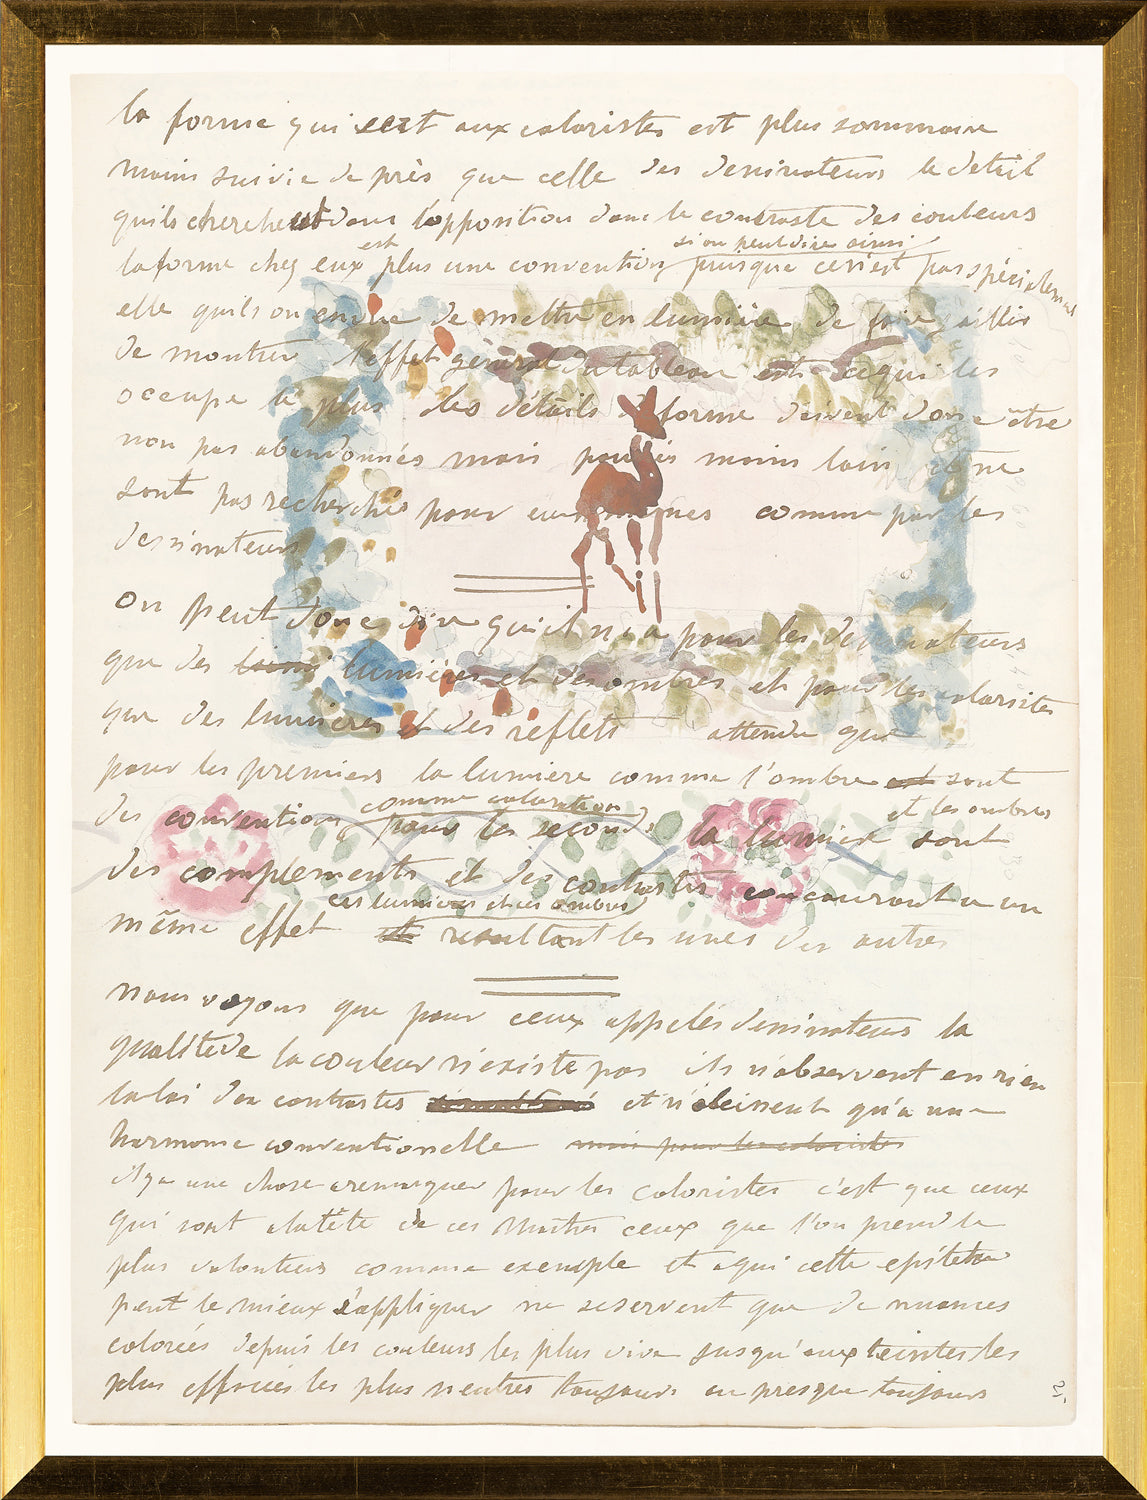 la forme qui sert aux coloristes est plus sommaire
moins suivie de près que celle des dessinateurs le detail
quils cherchent dans l'opposition dans le contraste des couleurs
est si on peut dire ainsi
la forme chez eux plus une convention puisque ce n'est pas spécialement
elle quils on envie de mettre en lumière de faire saillir
de montrer l'effet géneral du tableau est ce qui les
occupe le plus les détails de forme doivent donc être
non pas abandonnés mais poussés moins loin et ne
sont pas recherchés pour eux mêmes comme par les
dessinateurs
on peut donc dire qu'il n'y a pour les dessinateurs
que des lumières et des ombres et pour les coloristes
que des lumieres et des reflets attendu que
pour les premiers la lumière comme l'ombre est sont
comme coloration et les ombres
des conventions pour les seconds la lumière sont
des complements et des contrastes concourant a un
ces lumieres et ces ombres
même effet et resultant les unes des autres
nous voyons que pour ceux appelés dessinateurs la
qualité de la couleur n'existe pas ils n'observent en rien
la loi des contrastes et n'obeissent qu'a une
harmonie conventionelle mais pour les coloristes
il y a une chose a remarquer pour les coloristes c'est que ceux
qui sont a la tête de ces Maitres ceux que l'on prend le
plus volontiers comme exemple et a qui cette epitete
peut le mieux s'appliquer ne se servent que de nuances
colorées depuis les couleurs les plus vive jusqu'aux teintes les
plus effacées les plus neutres toujours ou presque toujours